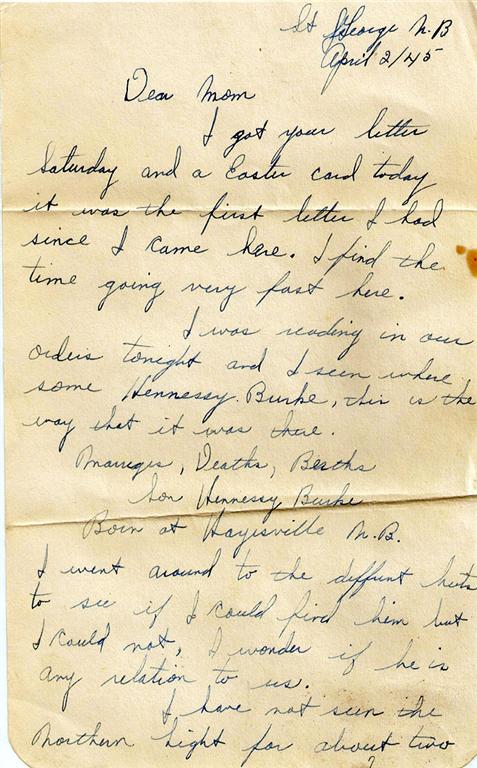 St George N.B
April 2/45
Dear Mom
I got your letter
Saturday and a Easter card today
it was the first letter I had
since I came here. I find the
time going very fast here.
I was reading in our
orders tonight and I seen where
some Hennessy Burke, this is the
way that it was there.
Marriges, Deaths, Beiths
Son Hennessy Burke
Born at Hayesville N.B.
I went around to the diffrent huts
to see if I could find him but
I could not, I wonder if he is
any relation to us.
I have not seen the
Northern Light for about two